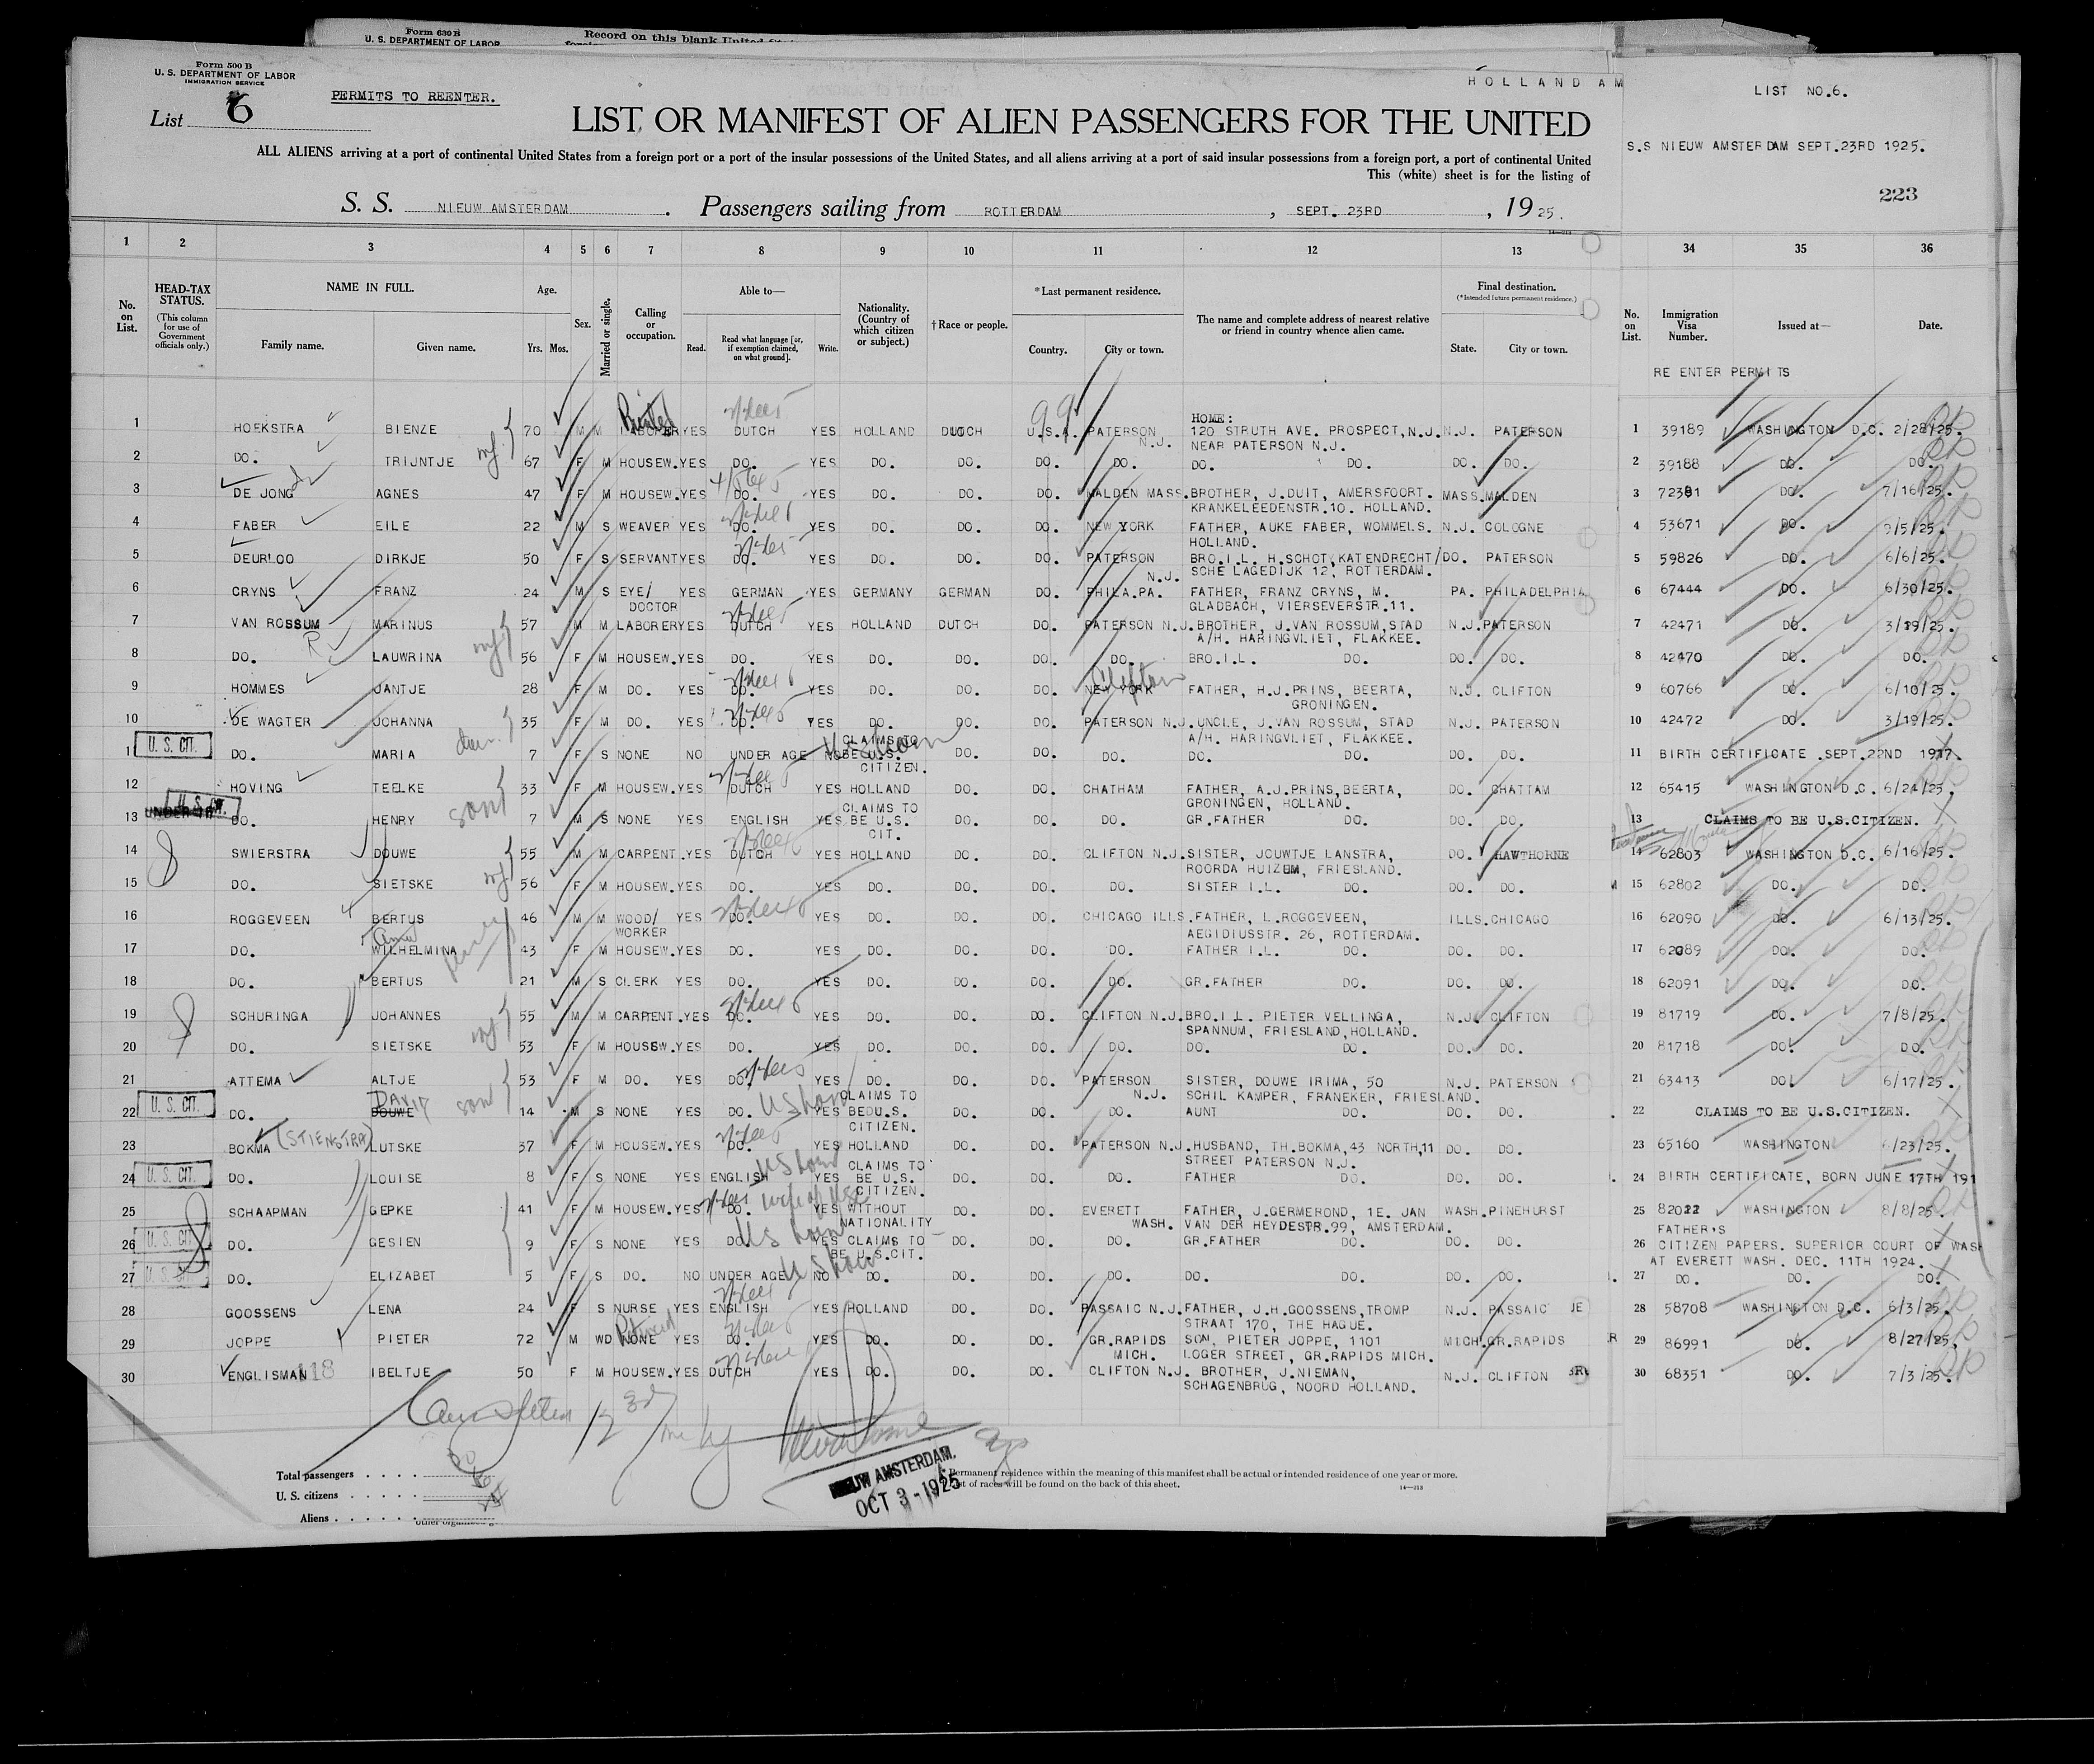 Form 630 B
U. S. DEPARTMENT OF LABOR
Record on this blank United
Form 500 B
U. S. DEPARTMENT OF LABOR
IMMIGRATION SERVICE
PERMITS TO REENTER.
HOLLAND AM
LIST NO.6.
List 6
LIST OR MANIFEST OF ALIEN PASSENGERS FOR THE UNITED
ALL ALIENS arriving at a port of continental United States from a foreign port or a port of the insular possessions of the United States, and all aliens arriving at a port of said insular possessions from a foreign port, a port of continental United
This (white) sheet is for the listing of
S.S NIEUW AMSTERDAM SEPT.23RD 1925.
223
S. S. NIEUW AMSTERDAM. Passengers sailing from ROTTERDAM, SEPT. 23RD, 1925.
1 2 3 4 5 6 7 8 9 10 11 12 13 34 35 36
No. on List.
HEAD-TAX STATUS.
(This column for use of Government officials only.)
NAME IN FULL.
Family name. Given name.
Age.
Yrs. Mos.
Sex.
Married or single.
Calling or occupation.
Able to—
Read. Read what language [or, if exemption claimed, on what ground]. Write.
Nationality. (Country of which citizen or subject.)
†Race or people.
*Last permanent residence.
Country. City or town.
The name and complete address of nearest relative or friend in country whence alien came.
Final destination.
(*Intended future permanent residence.)
State. City or town.
No. on List.
Immigration Visa Number.
Issued at—
Date.
RE ENTER PERMITS
1 HOEKSTRA BIENZE 70 M M LABORER YES DUTCH YES HOLLAND DUTCH U.S.A. PATERSON N.J. HOME: 120 STRUTH AVE. PROSPECT,N.J. NEAR PATERSON N.J. N.J. PATERSON 1 39189 WASHINGTON D.C. 2/28/25.
2 DO. TRIJNTJE 67 F M HOUSEW. YES DO. YES DO. DO. DO. DO. DO. DO. DO. DO. 2 39188 DO. DO.
3 DE JONG AGNES 47 F M HOUSEW. YES DO. YES DO. DO. DO. MALDEN MASS. BROTHER, J.DUIT, AMERSFOORT. KRANKELEEDENSTR.10. HOLLAND. MASS. MALDEN 3 72381 DO. 7/16/25.
4 FABER EILE 22 M S WEAVER YES DO. YES DO. DO. DO. NEW YORK FATHER, AUKE FABER, WOMMELS. HOLLAND. N.J. COLOGNE 4 53671 DO. 9/5/25.
5 DEURLOO DIRKJE 50 F S SERVANT YES DO. YES DO. DO. DO. PATERSON N.J. BRO.I.L. H.SCHOT,KATENDRECHT/ SCHE LAGEDIJK 12, ROTTERDAM. DO. PATERSON 5 59826 DO. 6/6/25.
6 CRYNS FRANZ 24 M S EYE/ DOCTOR YES GERMAN YES GERMANY GERMAN DO. PHILA.PA. FATHER, FRANZ CRYNS, M. GLADBACH, VIERSEVERSTR.11. PA. PHILADELPHIA 6 67444 DO. 6/30/25.
7 VAN ROSSUM MARINUS 57 M M LABORER YES DUTCH YES HOLLAND DUTCH DO. PATERSON N.J. BROTHER, J.VAN ROSSUM, STAD A/H. HARINGVLIET, FLAKKEE. N.J. PATERSON 7 42471 DO. 3/19/25.
8 DO. LAUWRINA 56 F M HOUSEW. YES DO. YES DO. DO. DO. DO. BRO.I.L. DO. DO. DO. 8 42470 DO. DO.
9 HOMMES JANTJE 28 F M DO. YES DO. YES DO. DO. DO. NEW YORK Clifton FATHER, H.J.PRINS, BEERTA, GRONINGEN. N.J. CLIFTON 9 60766 DO. 6/10/25.
10 DE WAGTER JOHANNA 35 F M DO. YES DO. YES DO. DO. DO. PATERSON N.J. UNCLE, J.VAN ROSSUM, STAD A/H. HARINGVLIET, FLAKKEE. N.J. PATERSON 10 42472 DO. 3/19/25.
11 U. S. CIT. DO. MARIA 7 F S NONE NO UNDER AGE NO CLAIMS TO BE U.S. CITIZEN. DO. DO. DO. DO. DO. DO. DO. 11 BIRTH CERTIFICATE SEPT.22ND 1917.
12 HOVING TEELKE 33 F M HOUSEW. YES DUTCH YES HOLLAND DO. DO. CHATHAM FATHER, A.J.PRINS,BEERTA, GRONINGEN, HOLLAND. DO. CHATTAM 12 65415 WASHINGTON D.C. 6/24/25,
13 U. S. CIT. DO. HENRY son 7 M S NONE YES ENGLISH YES CLAIMS TO BE U.S. CIT. DO. DO. DO. GR.FATHER DO. DO. DO. 13 CLAIMS TO BE U.S.CITIZEN.
14 SWIERSTRA DOUWE 55 M M CARPENT. YES DUTCH YES HOLLAND DO. DO. CLIFTON N.J. SISTER, JOUWTJE LANSTRA, ROORDA HUIZUM, FRIESLAND. DO. HAWTHORNE 14 62803 WASHINGTON D.C. 6/16/25.
15 DO. SIETSKE 56 F M HOUSEW. YES DO. YES DO. DO. DO. DO. SISTER I.L. DO. DO. DO. 15 62802 DO. DO.
16 ROGGEVEEN BERTUS 46 M M WOOD/ WORKER YES DO. YES DO. DO. DO. CHICAGO ILLS. FATHER, L.ROGGEVEEN, AEGIDIUSSTR. 26, ROTTERDAM. ILLS. CHICAGO 16 62090 DO. 6/13/25.
17 DO. WILHELMINA 43 F M HOUSEW. YES DO. YES DO. DO. DO. DO. FATHER I.L. DO. DO. DO. 17 62089 DO. DO.
18 DO. BERTUS 21 M S CLERK YES DO. YES DO. DO. DO. DO. GR.FATHER DO. DO. DO. 18 62091 DO. DO.
19 SCHURINGA JOHANNES 55 M M CARPENT. YES DO. YES DO. DO. DO. CLIFTON N.J. BRO.I.L. PIETER VELLINGA, SPANNUM, FRIESLAND,HOLLAND. N.J. CLIFTON 19 81719 DO. 7/8/25.
20 DO. SIETSKE 53 F M HOUSSW. YES DO. YES DO. DO. DO. DO. DO. DO. DO. DO. 20 81718 DO. DO.
21 ATTEMA ALTJE 53 F M DO. YES DO. YES DO. DO. DO. PATERSON N.J. SISTER, DOUWE IRIMA, 50 SCHIL KAMPER, FRANEKER, FRIESLAND. N.J. PATERSON 21 63413 DO. 6/17/25.
22 U. S. CIT. DO. DOUWE son 14 M S NONE YES DO. US born YES CLAIMS TO BEDU.S. CITIZEN. DO. DO. DO. AUNT DO. DO. DO. 22 CLAIMS TO BE U.S.CITIZEN.
23 BOKMA (STIENSTRA) LUTSKE 37 F M HOUSEW. YES DO. YES HOLLAND DO. DO. PATERSON N.J. HUSBAND, TH.BOKMA,43 NORTH,11 STREET PATERSON N.J. DO. DO. 23 65160 WASHINGTON 6/23/25.
24 U. S. CIT. DO. LOUISE 8 F S NONE YES ENGLISH US born YES CLAIMS TO BE U.S. CITIZEN. DO. DO. DO. FATHER DO. DO. DO. 24 BIRTH CERTIFICATE, BORN JUNE 17TH 191
25 SCHAAPMAN GEPKE 41 F M HOUSEW. YES DO. wife of USC YES WITHOUT NATIONALITY DO. DO. EVERETT WASH. FATHER, J.GERMEROND, 1E. JAN VAN DER HEYDESTR.99, AMSTERDAM. WASH. PINEHURST 25 82022 WASHINGTON 8/8/25.
26 U. S. CIT. DO. GESIEN 9 F S NONE YES DO. US born YES CLAIMS TO BE U.S.CIT. DO. DO. DO. GR.FATHER DO. DO. DO. 26 FATHER'S CITIZEN PAPERS. SUPERIOR COURT OF WASH AT EVERETT WASH. DEC. 11TH 1924.
27 U. S. CIT. DO. ELIZABET 5 F S DO. NO UNDER AGE US born NO DO. DO. DO. DO. DO. DO. DO. DO. 27 DO. DO. DO.
28 GOOSSENS LENA 24 F S NURSE YES ENGLISH YES HOLLAND DO. DO. PASSAIC N.J. FATHER, J.H.GOOSSENS,TROMP STRAAT 170, THE HAGUE. N.J. PASSAIC 28 58708 WASHINGTON D.C. 6/3/25.
29 JOPPE PIETER 72 M WD NONE Retired YES DO. YES DO. DO. DO. GR.RAPIDS MICH. SON, PIETER JOPPE, 1101 LOGER STREET, GR.RAPIDS MICH. MICH. GR.RAPIDS 29 86991 DO. 8/27/25,
30 ENGLISMAN 118 IBELTJE 50 F M HOUSEW. YES DUTCH YES DO. DO. DO. CLIFTON N.J. BROTHER, J.NIEMAN, SCHAGENBRUG, NOORD HOLLAND. N.J. CLIFTON 30 68351 DO. 7/3/25.
Total passengers
U. S. citizens
Aliens
NIEUW AMSTERDAM.
OCT 3 - 1925
Permanent residence within the meaning of this manifest shall be actual or intended residence of one year or more.
List of races will be found on the back of this sheet.
14—213